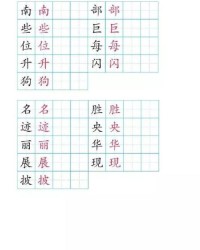 南南 部部
些些 巨巨
位位 每每
升升 闪闪
狗狗
名名 胜胜
迹迹 央央
丽丽 华华
展展 现现
披披